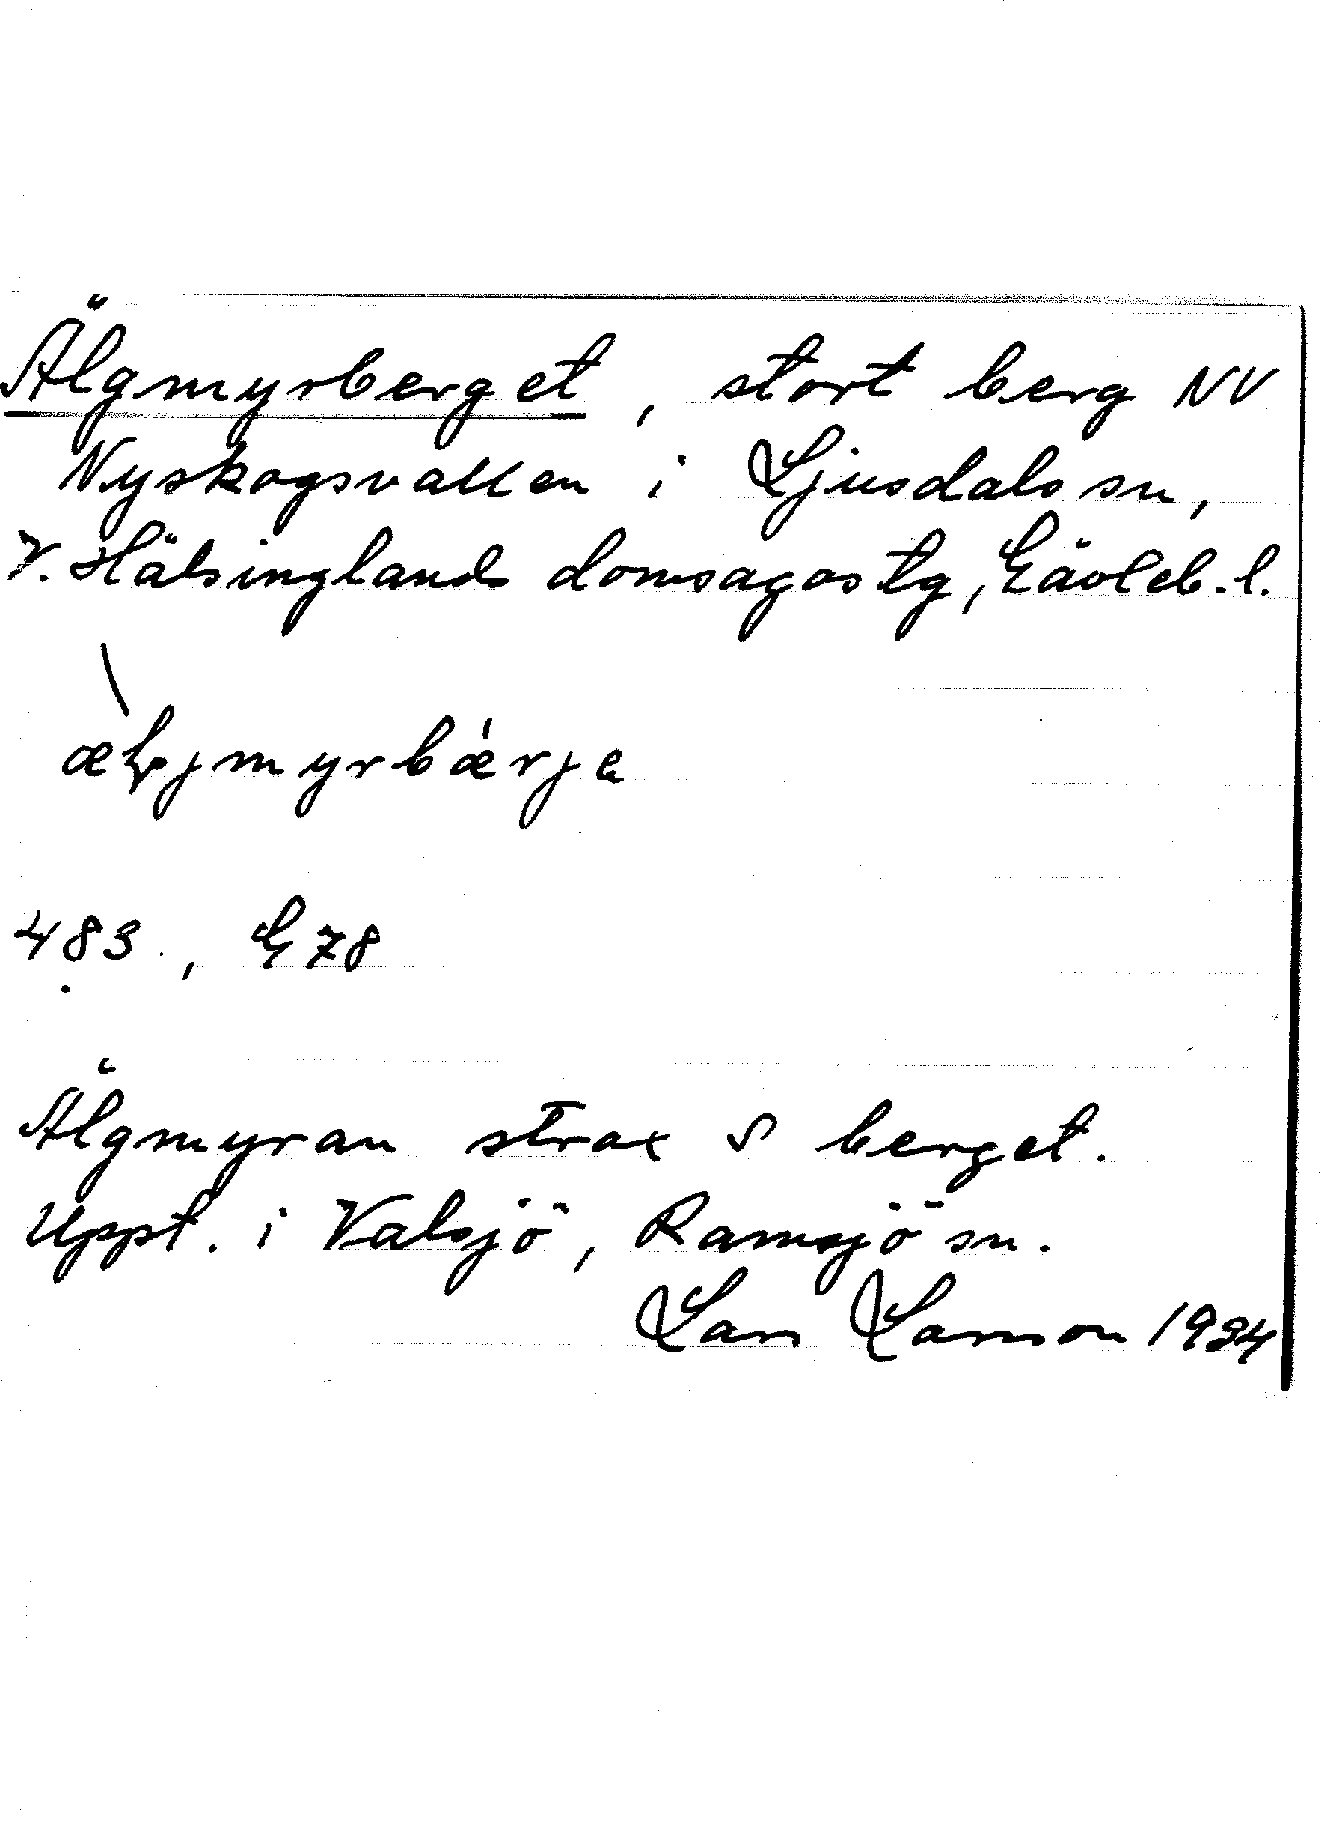 Älgmyrberget, stort berg NV
Nyskogsvallen i Ljusdals sn,
V. Hälsinglands domsagas tg, Gävleb. l.
483, G78
Älgmyran strax S berget.
Uppt. i Valsjö, Ramsjö sn.
Lars Larsson 1934